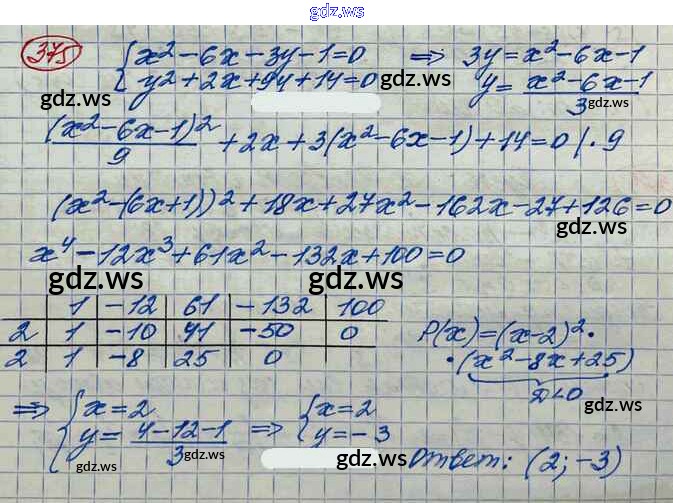 gdz.ws
375 { x² - 6x - 3y - 1 = 0 ⇒ 3y = x² - 6x - 1
{ y² + 2x + 9y + 14 = 0 y = (x² - 6x - 1)/3
gdz.ws gdz.ws gdz.ws
(x² - 6x - 1)²/9 + 2x + 3(x² - 6x - 1) + 14 = 0 | · 9
(x² - (6x + 1))² + 18x + 27x² - 162x - 27 + 126 = 0
gdz.ws gdz.ws
x⁴ - 12x³ + 61x² - 132x + 100 = 0
gdz.ws gdz.ws
1 | -12 | 61 | -132 | 100
2 | 1 | -10 | 41 | -50 | 0
2 | 1 | -8 | 25 | 0
P(x) = (x - 2)² ·
· (x² - 8x + 25)
D < 0
gdz.ws
⇒ { x = 2
{ y = (4 - 12 - 1)/3 ⇒ { x = 2
{ y = -3
gdz.ws gdz.ws gdz.ws
Ответ: (2; -3)